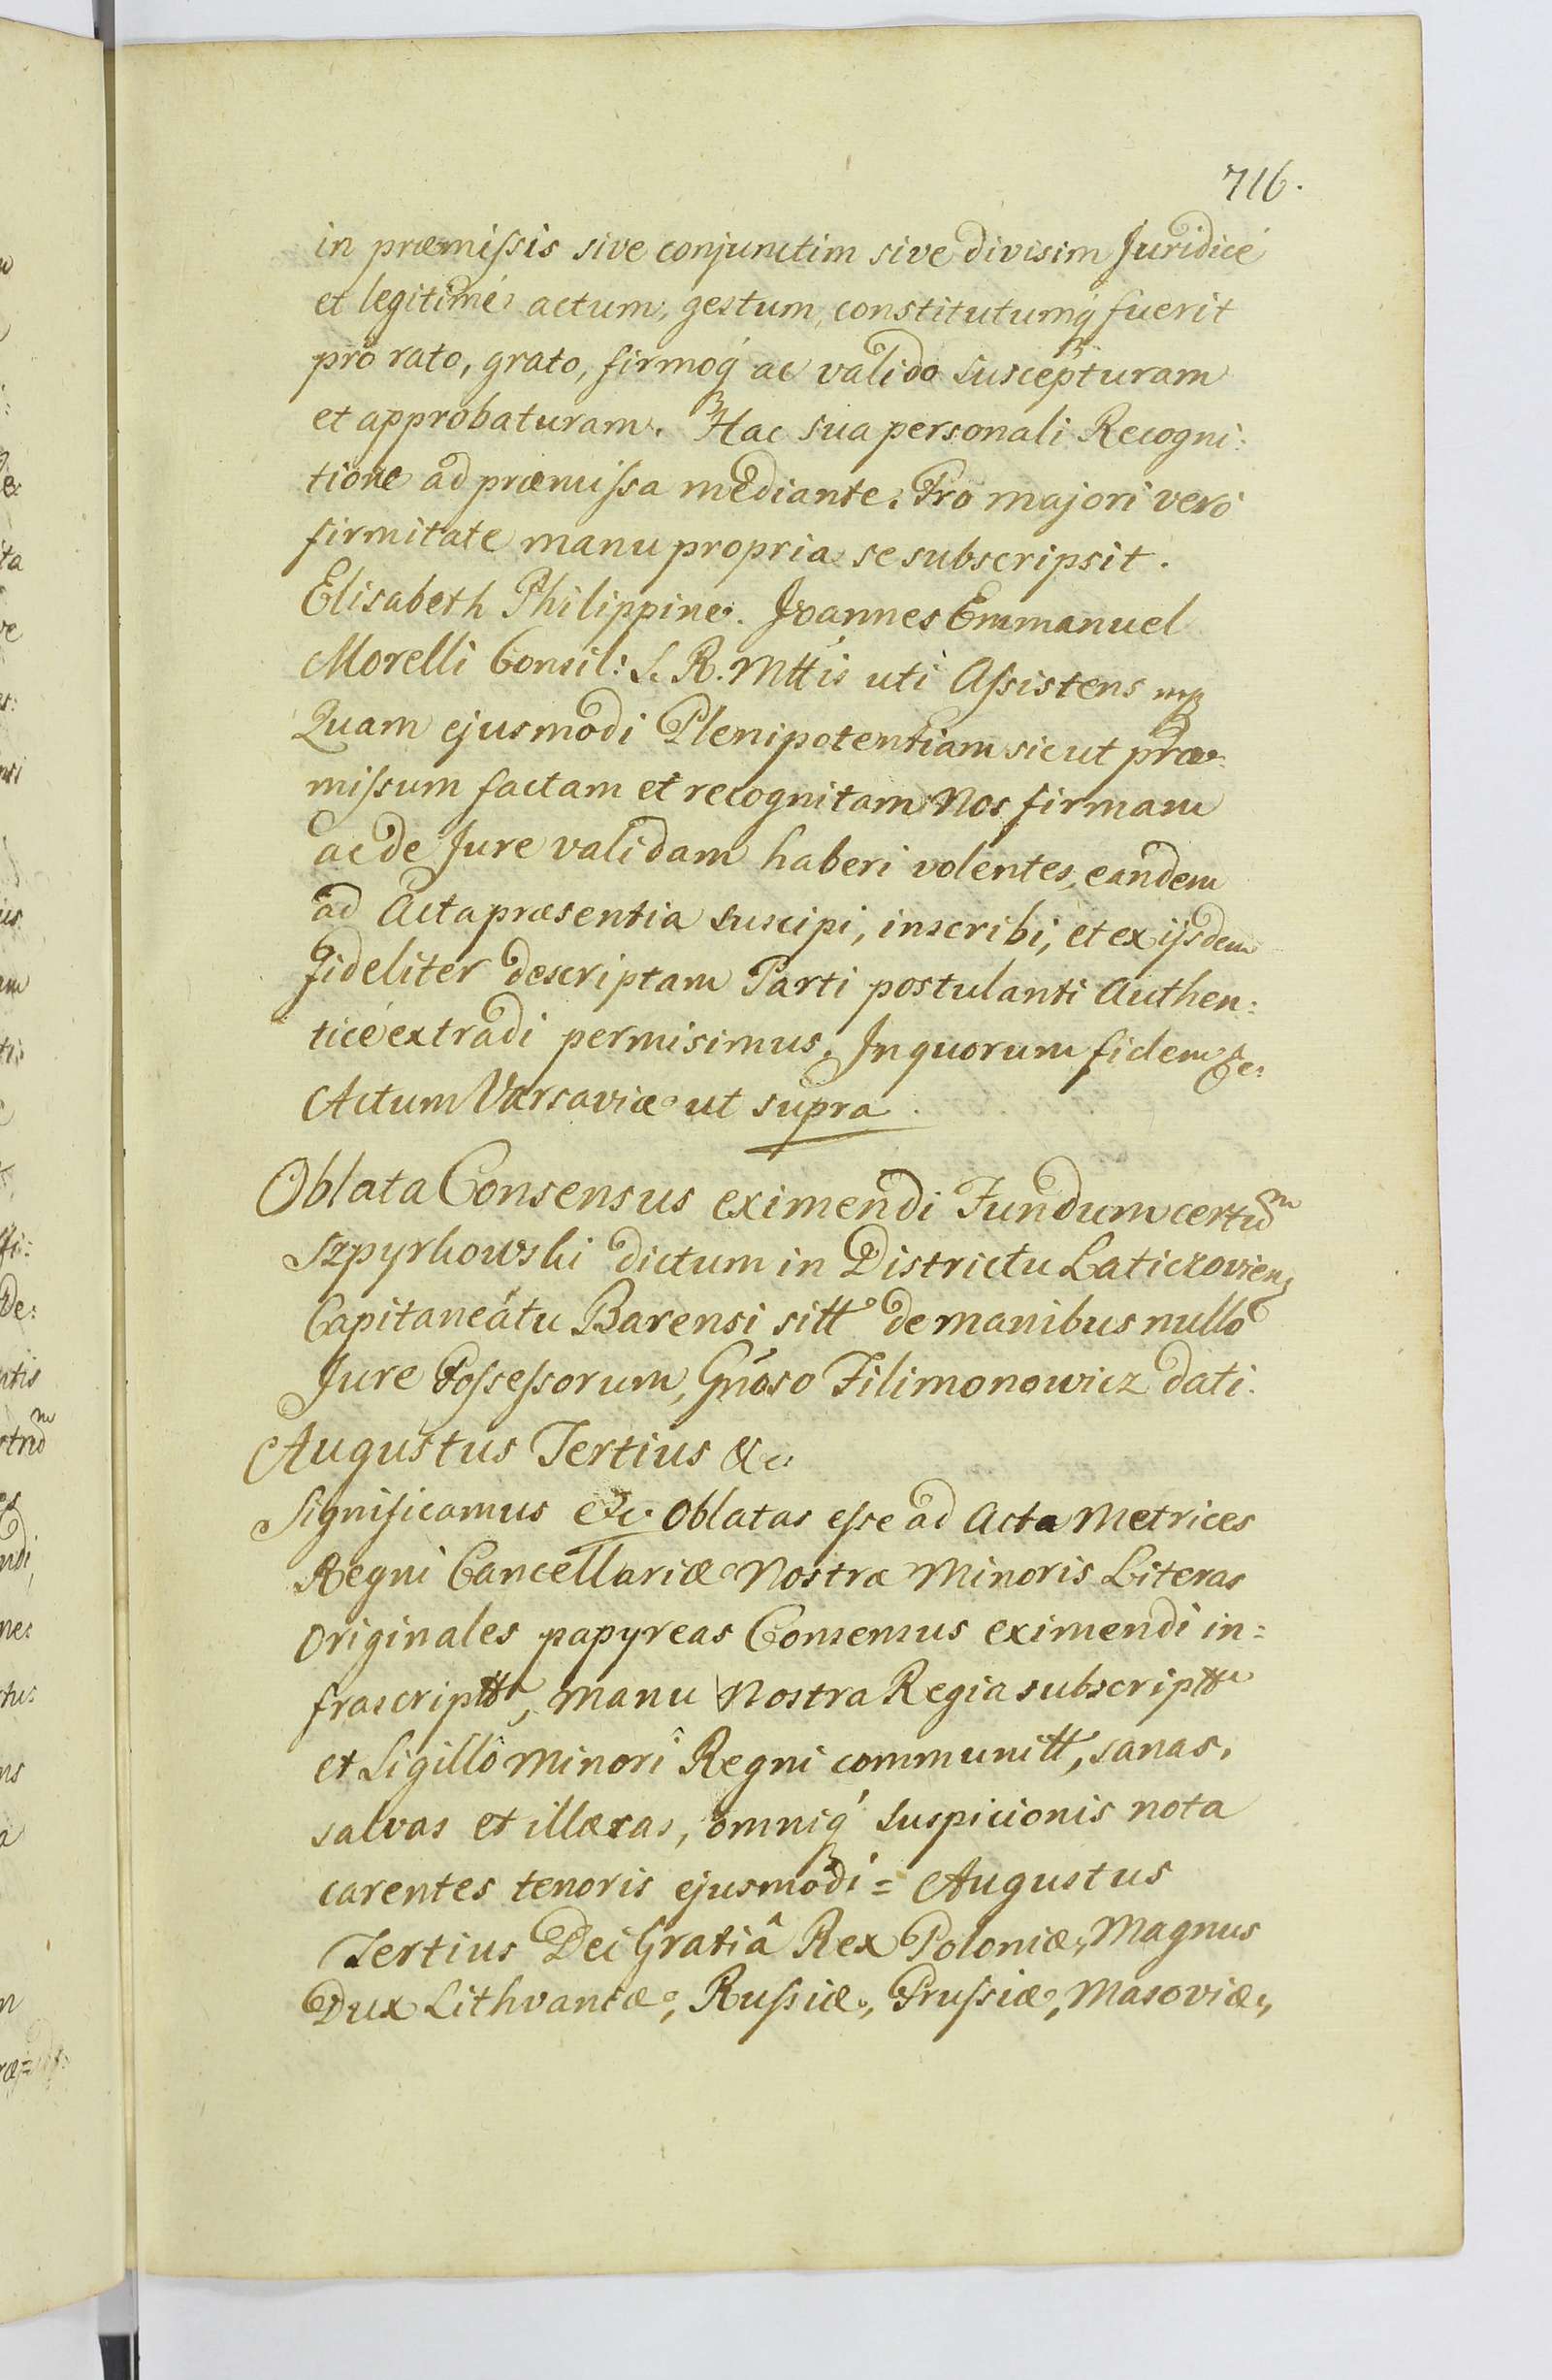 716.
in præmissis sive conjunctim sive divisim Juridicé
et legitimé actum, gestum, constitutumq́ fuerit
pro rato, grato, firmoq́ ac valido suscepturam
et approbaturam. Hac sua personali Recogni:
tione ad præmissa mediante. Pro majori veró
firmitate manu propria se subscripsit.
Elisabeth Philippine. Joannes Emmanuel
Morelli Consil: S. R. Mttis uti Assistens mp
Quam ejusmodi Plenipotentiam sicut præ:
missum factam et recognitam Nos firmam
ac de Jure validam haberi volentes, eandem
ad Acta præsentia suscipi, inscribi, et ex ijsdem
fideliter descriptam Parti postulanti Authen:
ticé extradi permisimus. In quorum fidem &c.
Actum Varsaviæ ut supra.
Oblata Consensus eximendi Fundum certum
Szpyrkowski dictum in Districtu Laticzovien,
Capitaneátu Barensi sitt de manibus nullo
Jure Possessorum, Gnoso Filimonowicz dati.
Augustus Tertius &c.
Significamus &c. Oblatas esse ad Acta Metrices
Regni Cancellariæ Nostræ Minoris Literas
Originales papyreas Consensus eximendi in=
frascriptt, manu Nostra Regia subscriptt
et Sigillô Minori Regni communitt, sanas,
salvas et illæsas, omniq́ suspicionis nota
carentes tenoris ejusmodi = Augustus
Tertius Dei Gratiâ Rex Poloniæ, Magnus
Dux Lithvaniæ, Russiæ, Prussiæ, Masoviæ,